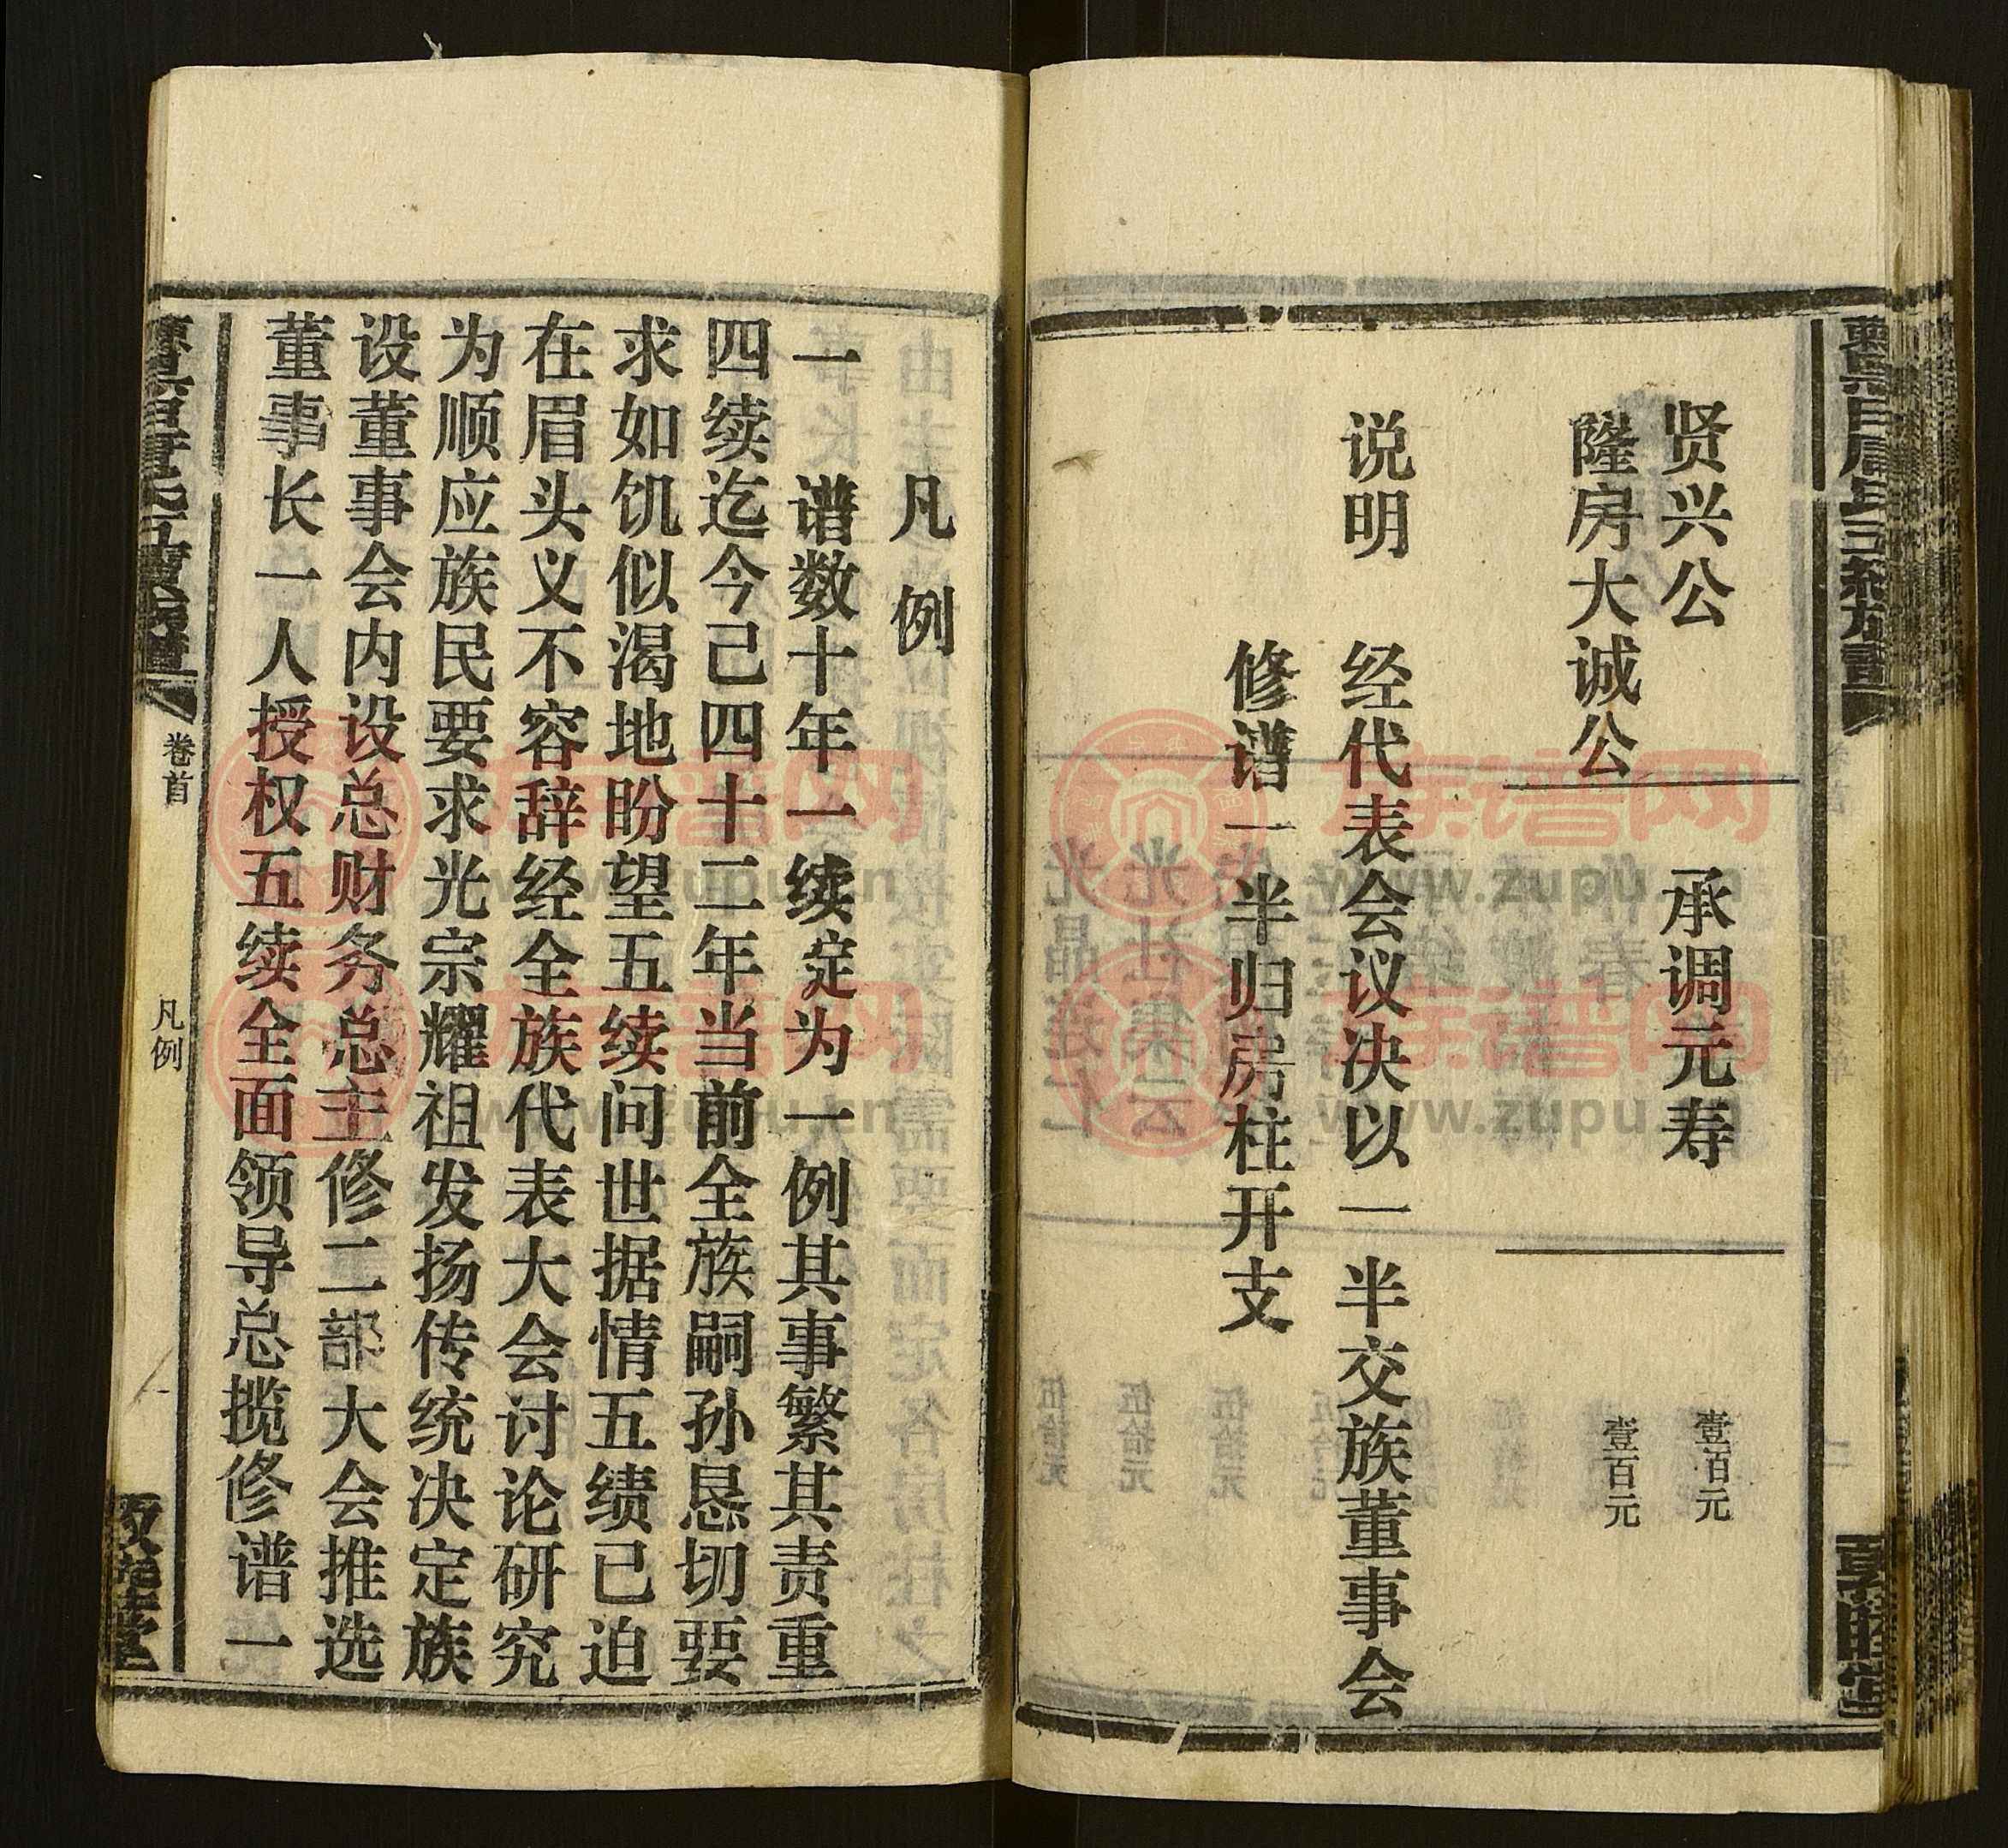 贤兴公 承调元寿 壹百元
隆房大诚公 壹百元
说明 经代表会议决以一半交族董事会
修谱一半归房柱开支
敦睦堂
凡例
一 谱数十年一续定为一例其事繁其责重
四续迄今己四十二年当前全族嗣孙恳切要
求如饥似渴地盼望五续问世据情五绩已迫
在眉头义不容辞经全族代表大会讨论研究
为顺应族民要求光宗耀祖发扬传统决定族
设董事会内设总财务总主修二部大会推选
董事长一人授权五续全面领导总揽修谱一
卷首 凡例 一
族谱网
www.zupu.cn
族谱网
www.zupu.cn
族谱网
www.zupu.cn
族谱网
www.zupu.cn